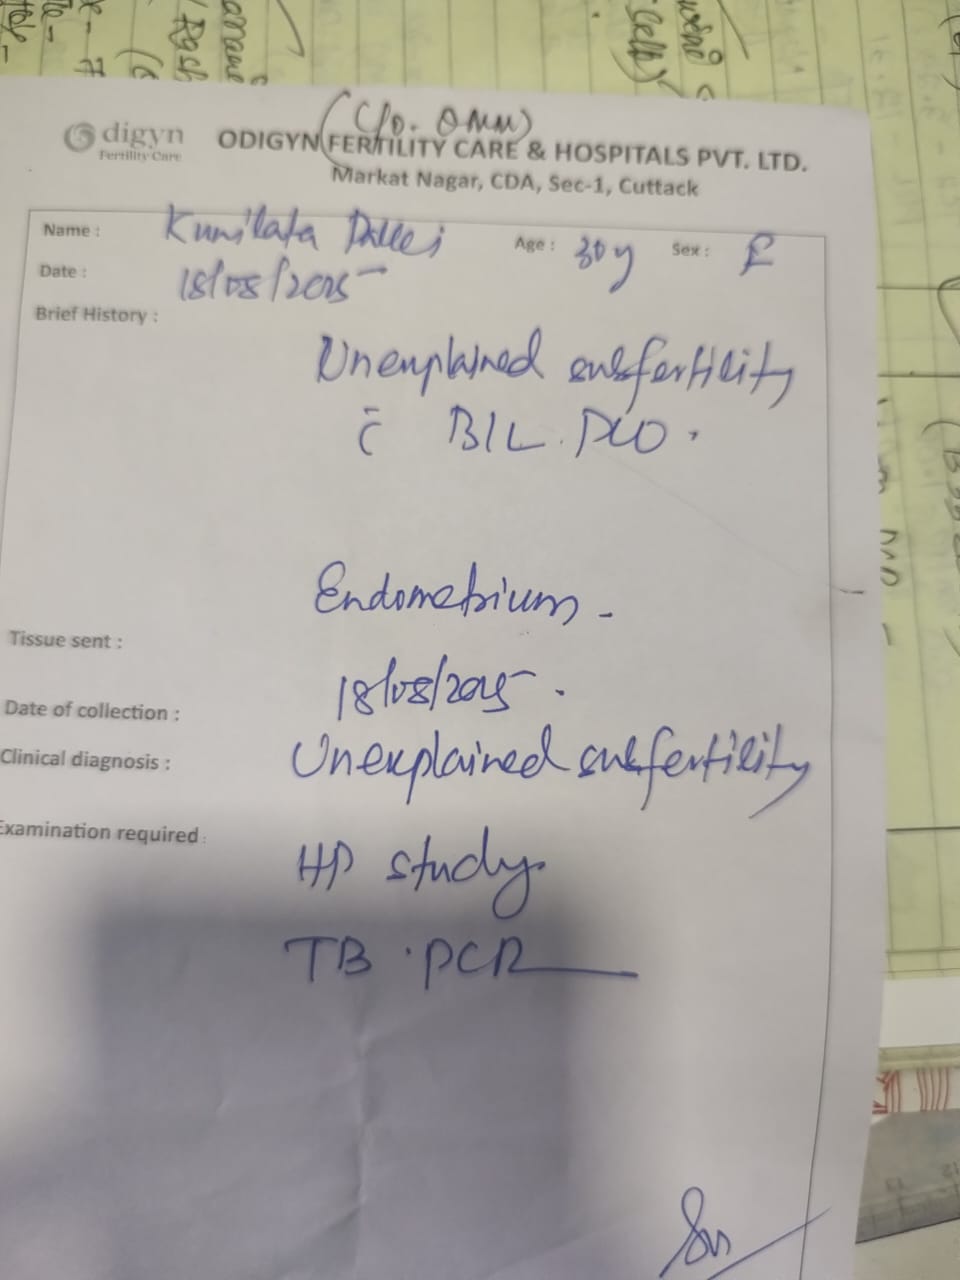 (C/O. OMM)
digyn
Fertility Care
ODIGYN FERTILITY CARE & HOSPITALS PVT. LTD.
Markat Nagar, CDA, Sec-1, Cuttack
Name : Kunilata Dallei Age : 30y Sex : F
Date : 18/08/2025
Brief History :
Unexplained subfertility
c̄ B/L. PCO.
Tissue sent : Endometrium -
Date of collection : 18/08/2025.
Clinical diagnosis : Unexplained subfertility
Examination required : HP study
TB. PCR